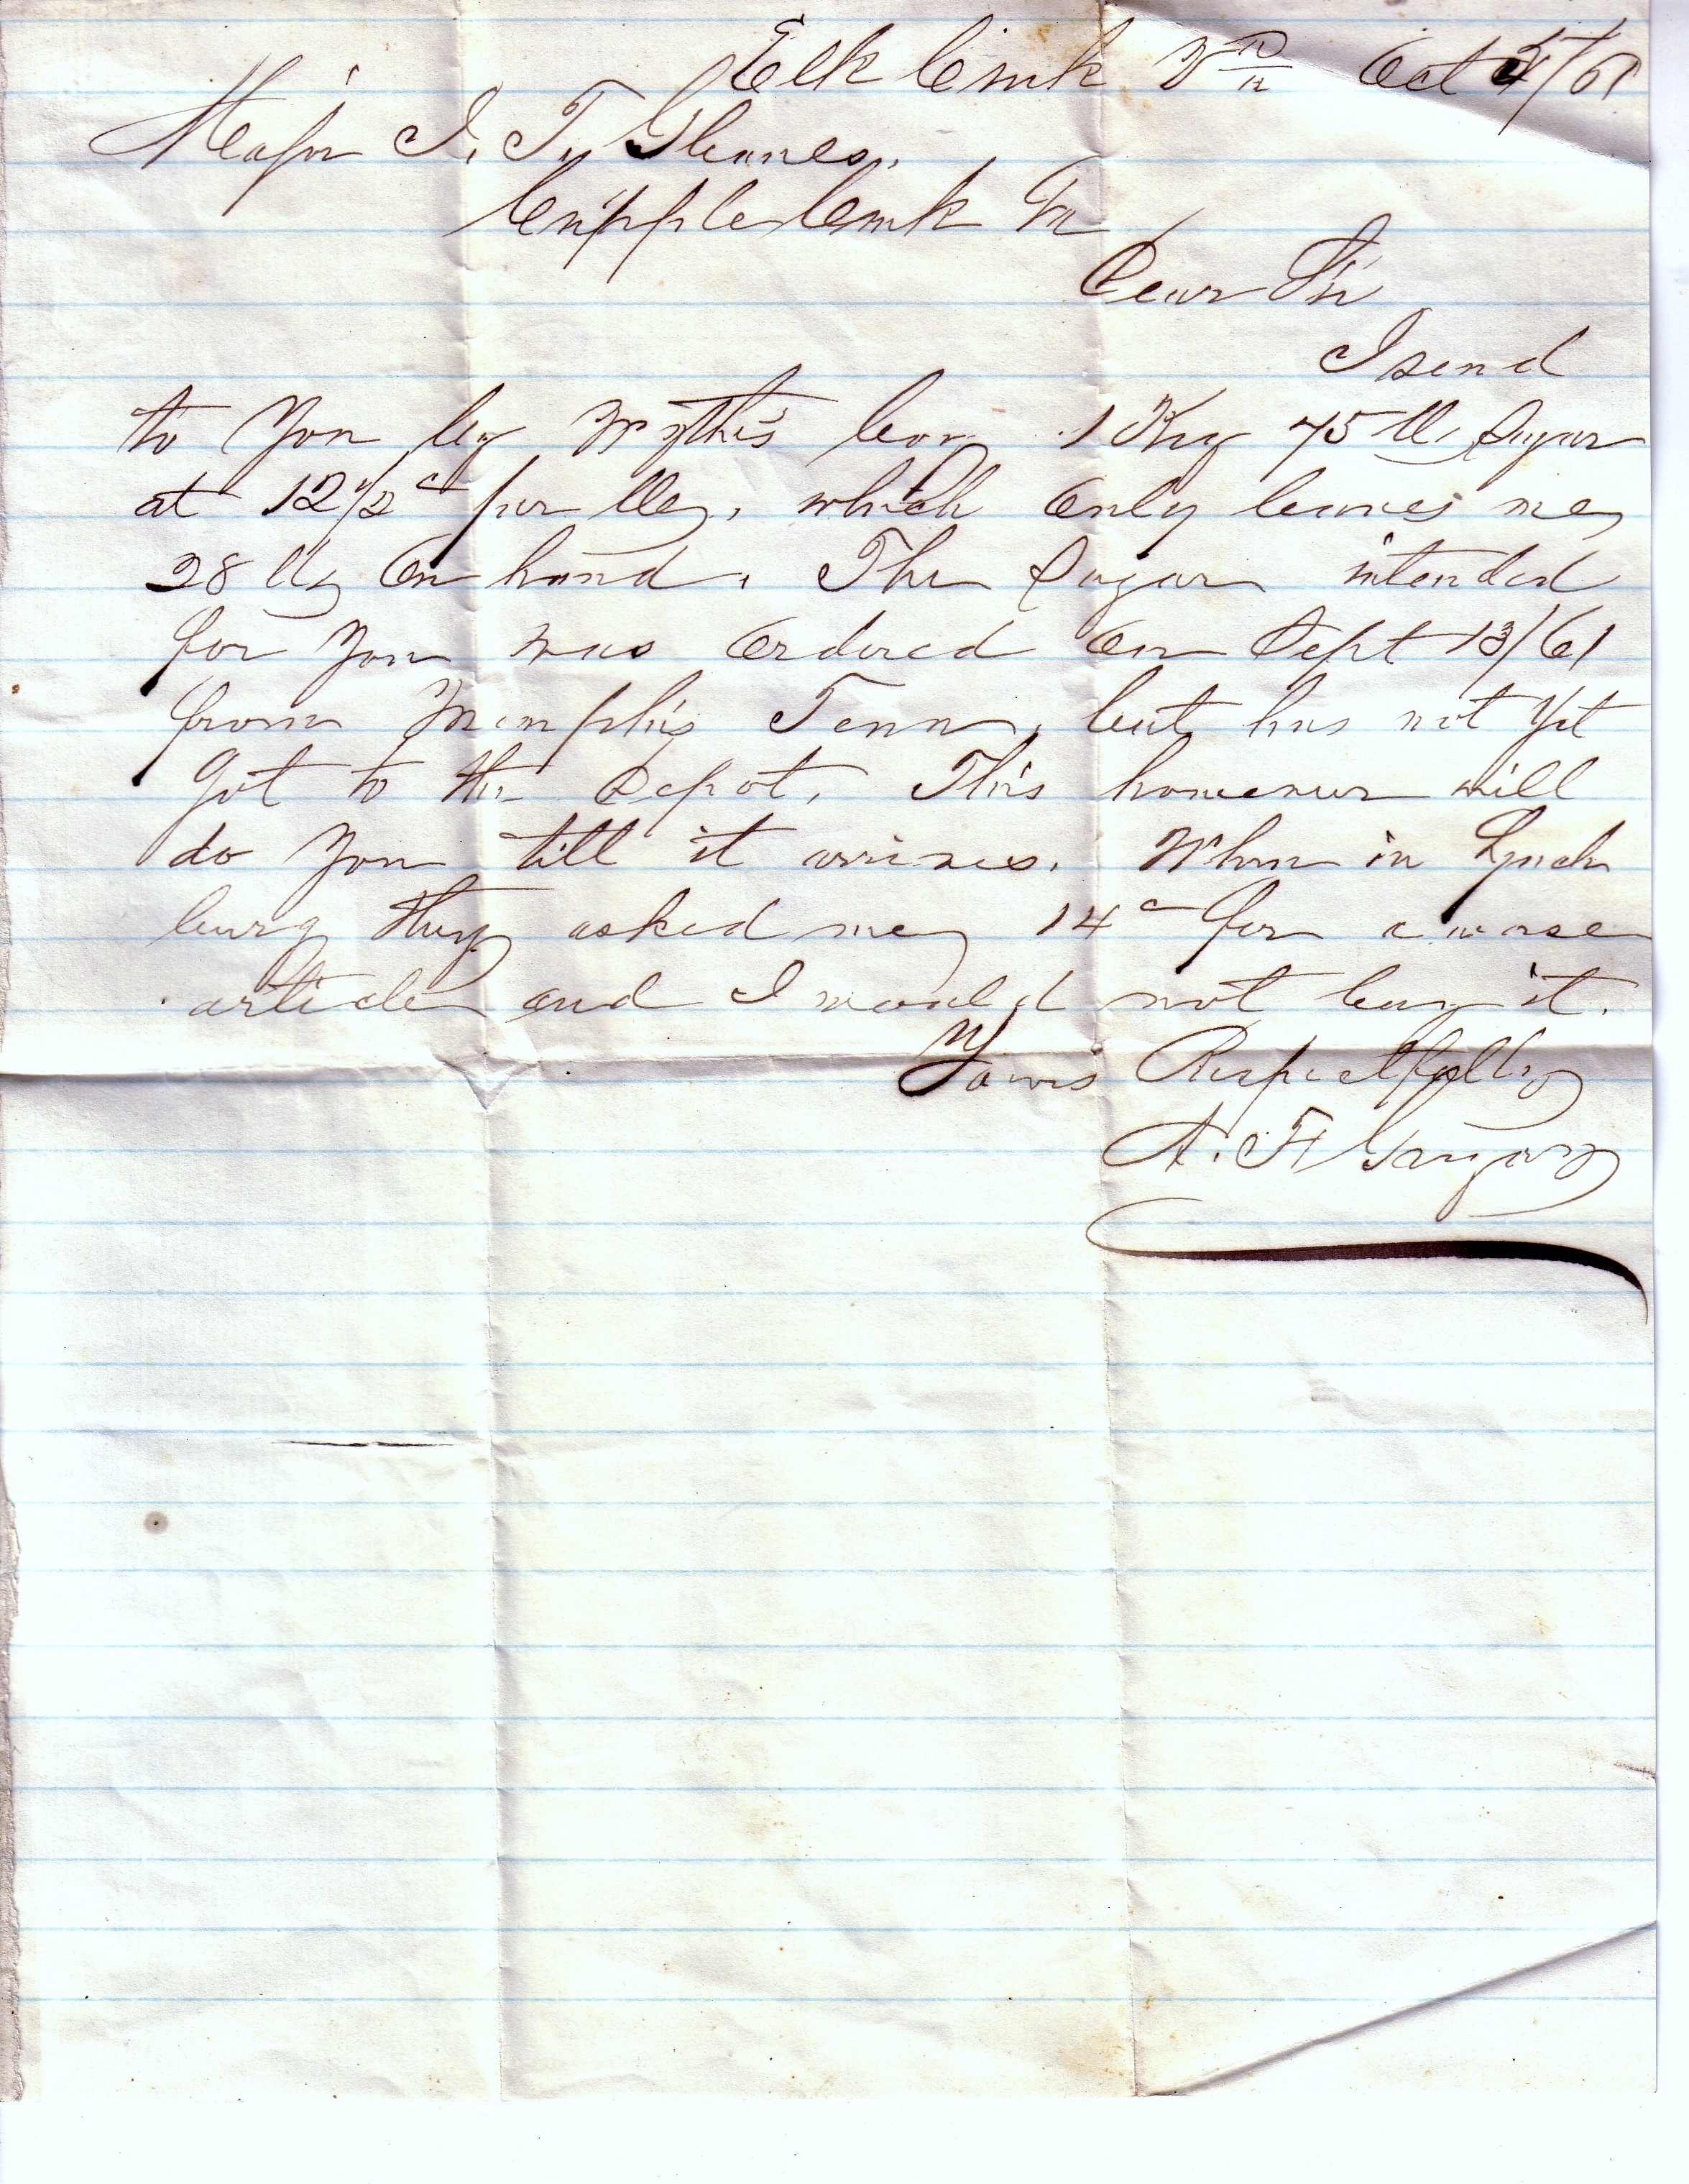 Elk Creek Va Oct 5/61
Major I. T. Gleaves.
Cripple Creek Va
Dear Sir
I send
to You by boy 1 Keg 75 lb Sugar
at 12 1/2 c per lb, which Only leaves me
28 lbs On hand. The Sugar intended
for You was Ordered On Sept 13/61
from Memphis Tenn, but has not Yet
got to the Depot, This however will
do You till it arrives. When in Lynch
burg they asked me 14 c for a worse
article and I would not buy it.
Yours Respectfully
A. F Gregory